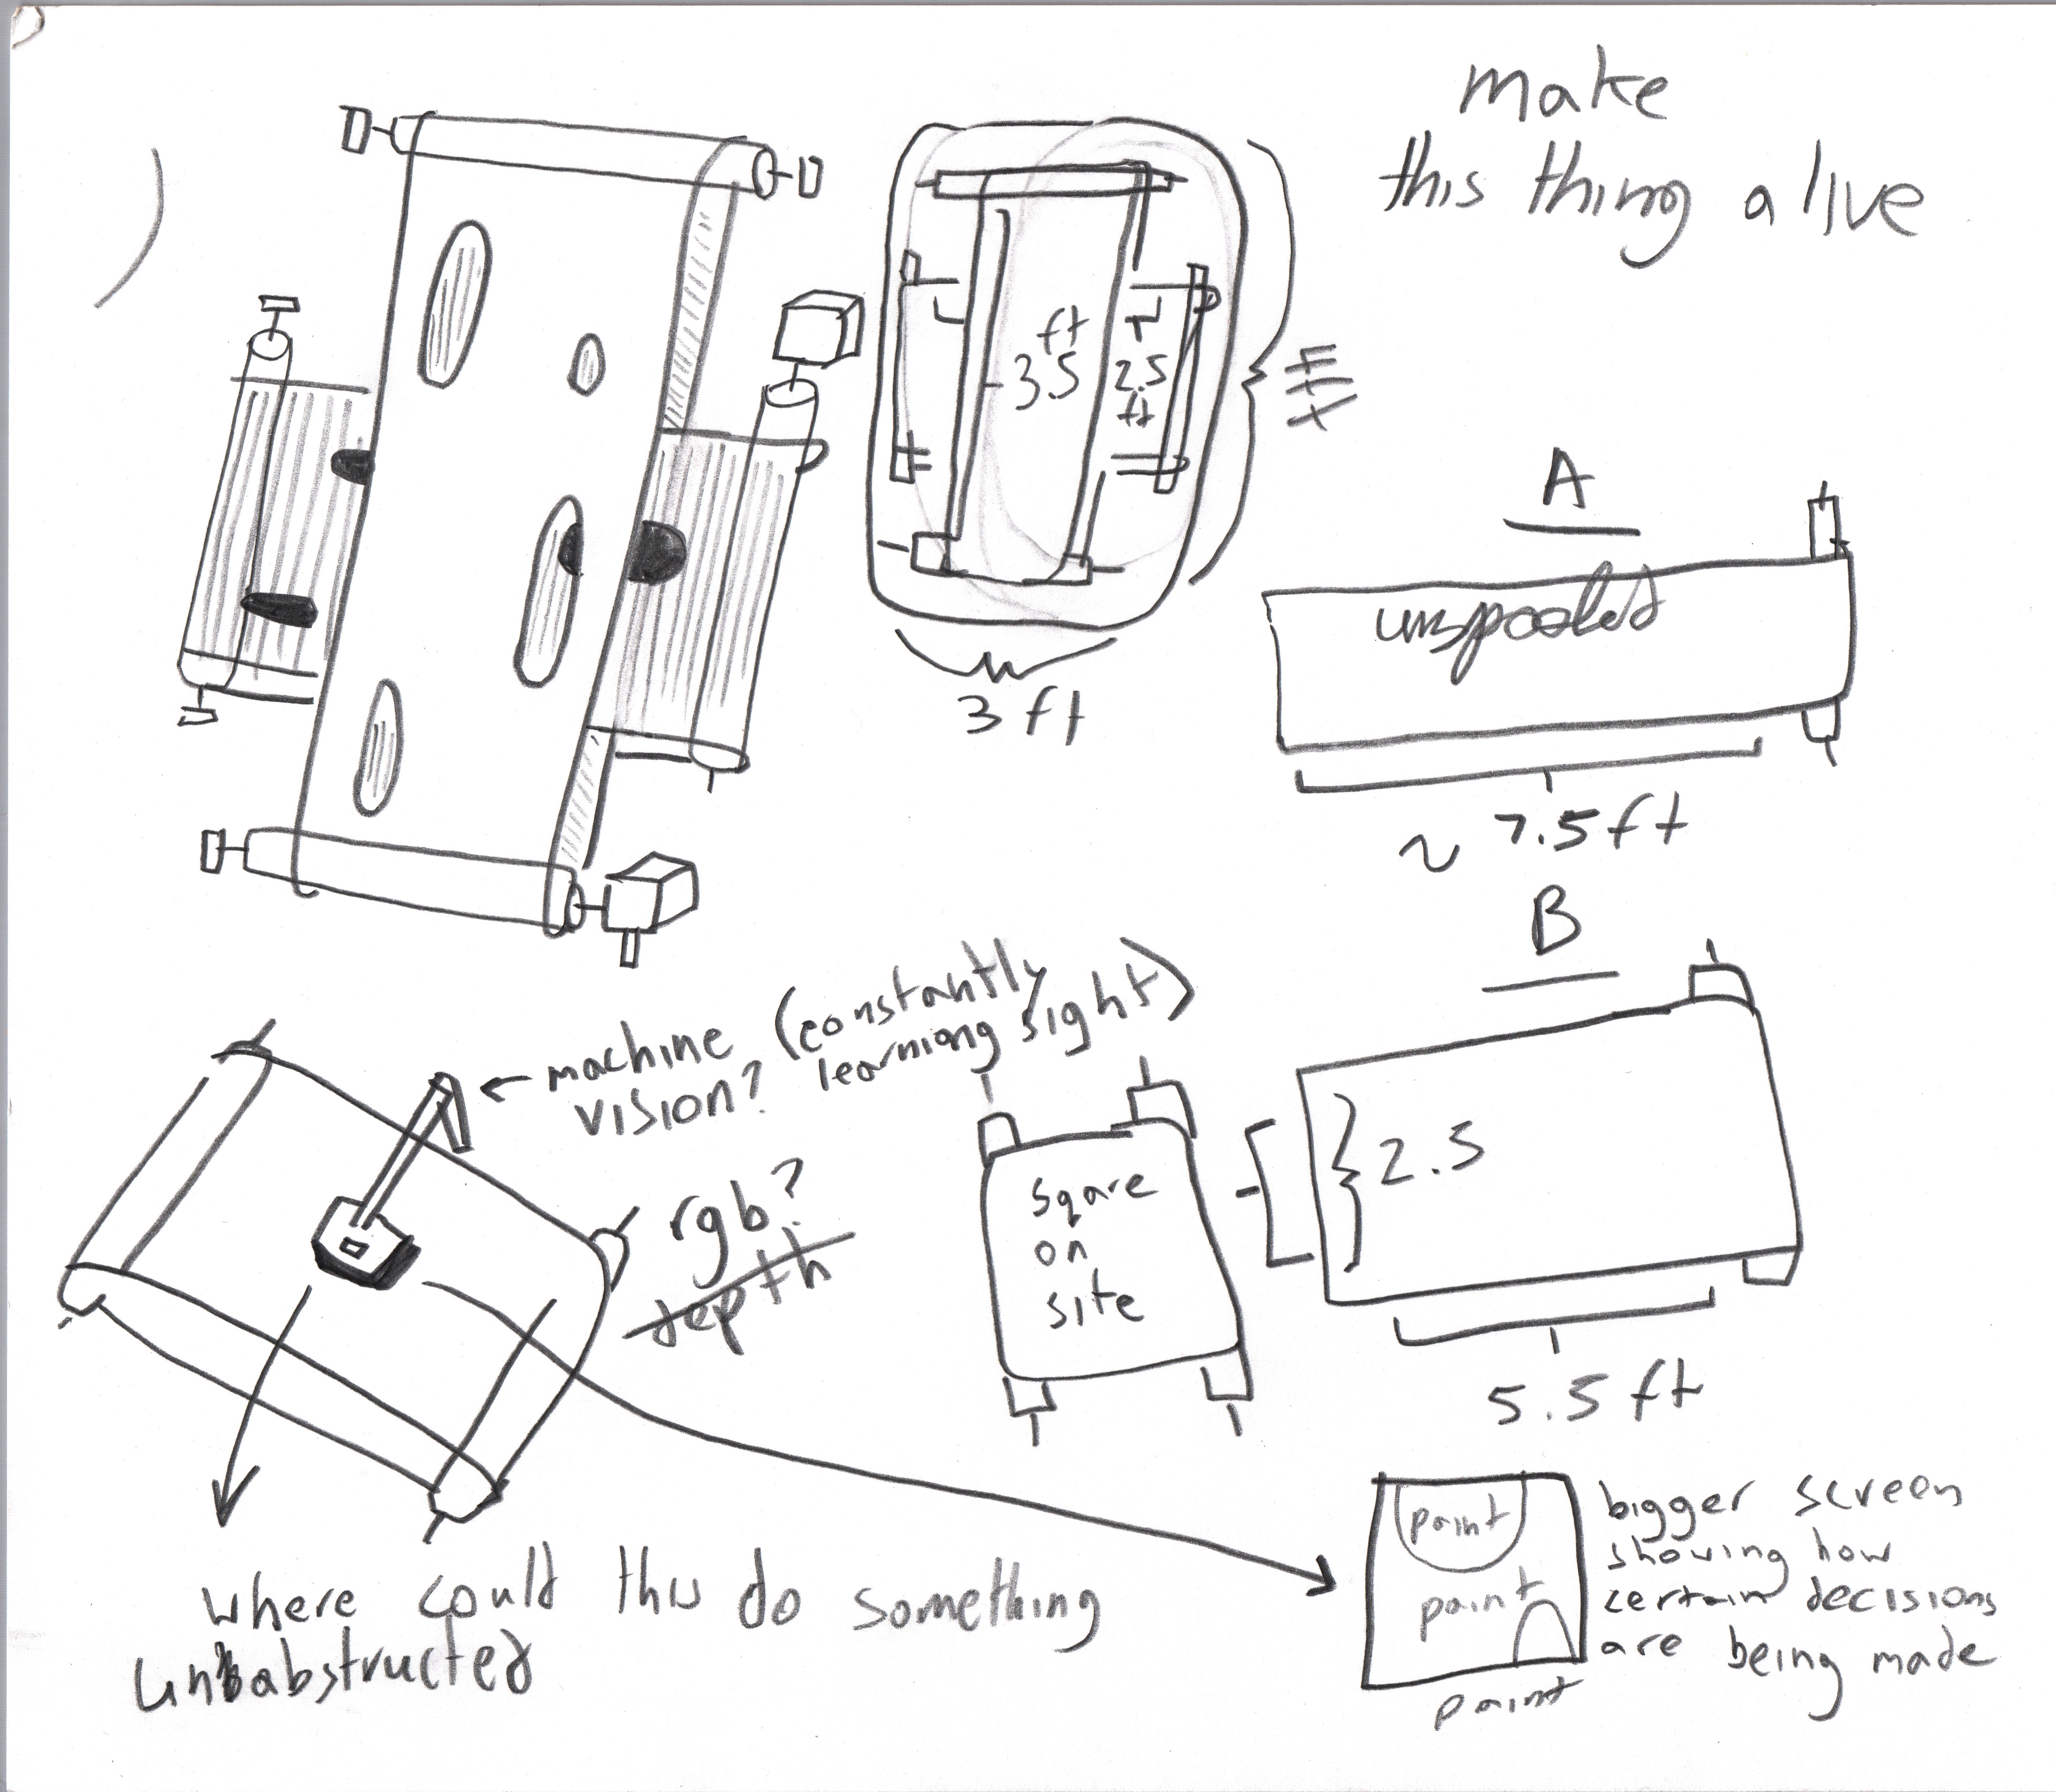 make
this thing alive
ft
3.5
2.5
ft
3 ft
A
unspooled
~ 7.5 ft
B
machine (constantly
vision? learniong sight)
rgb?
depth
sqare
on
site
2.5
5.5 ft
where could this do something
unabstructed
paint
paint
paint
bigger screen
showing how
certain decisions
are being made